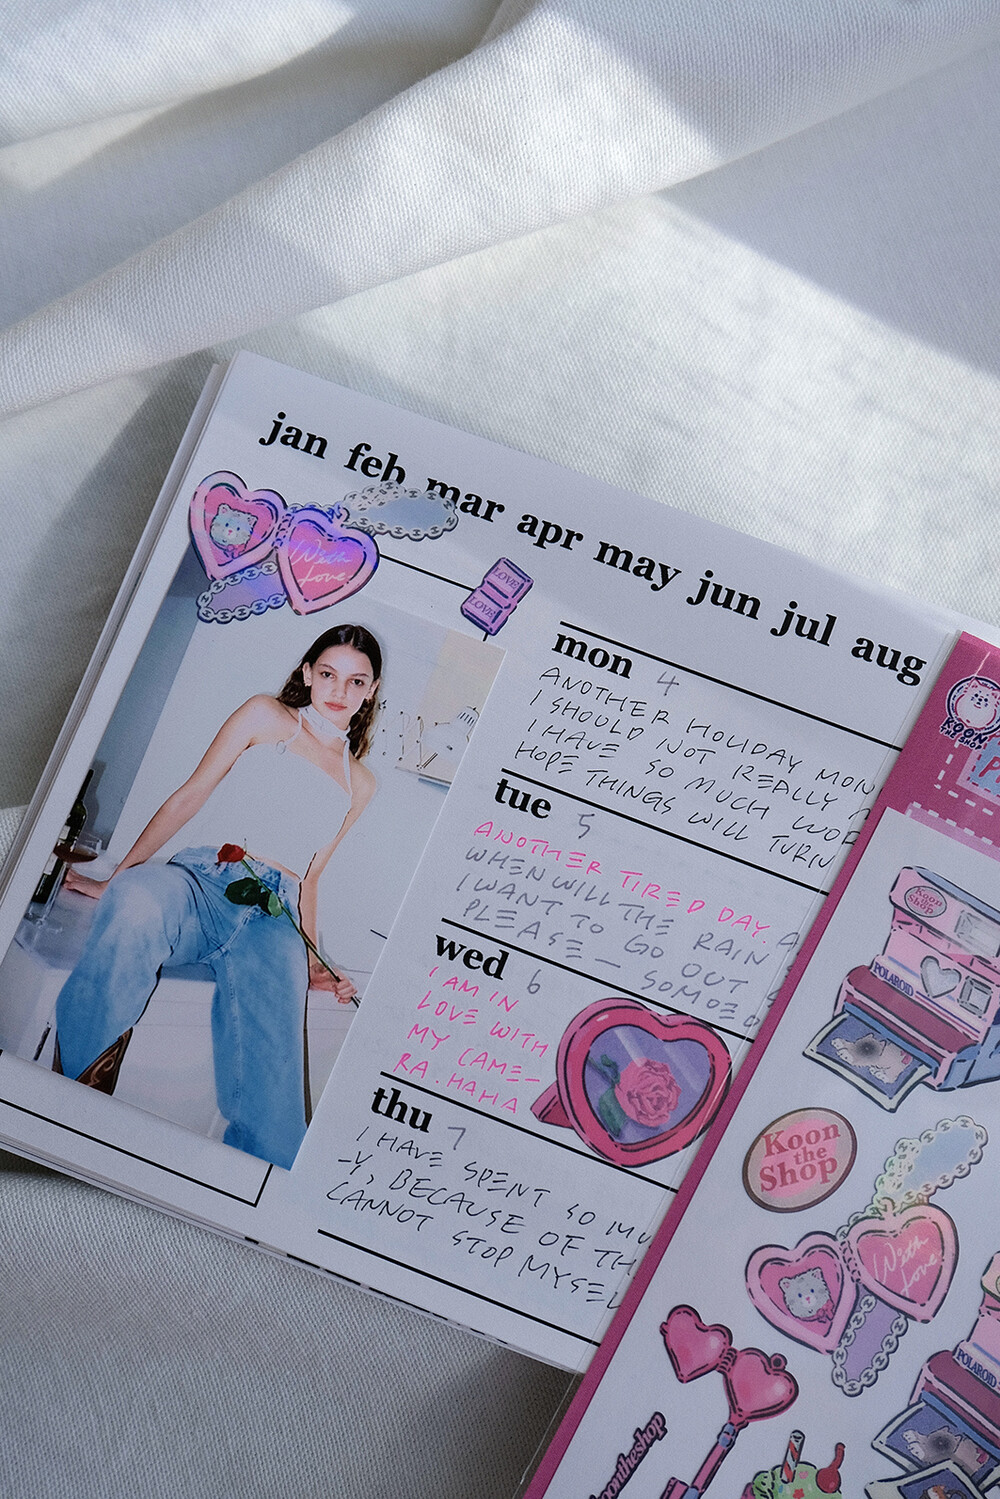 jan feb mar apr may jun jul aug
With
Love
LOVE
LOVE
mon 4
ANOTHER HOLIDAY MON
I SHOULD NOT REALLY
I HAVE SO MUCH WOR
HOPE THINGS WILL TURN
tue 5
ANOTHER TIRED DAY. A
WHEN WILL THE RAIN
I WANT TO GO OUT
PLEASE — SOMEO
wed 6
I AM IN
LOVE WITH
MY CAME-
RA. HAHA
thu 7
I HAVE SPENT SO MU
-Y, BECAUSE OF TH
CANNOT STOP MYSEL
KOON
THE SHOP
Koon
the
Shop
POLAROID
Koon
the
Shop
With
Love
POLAROID
koontheshop